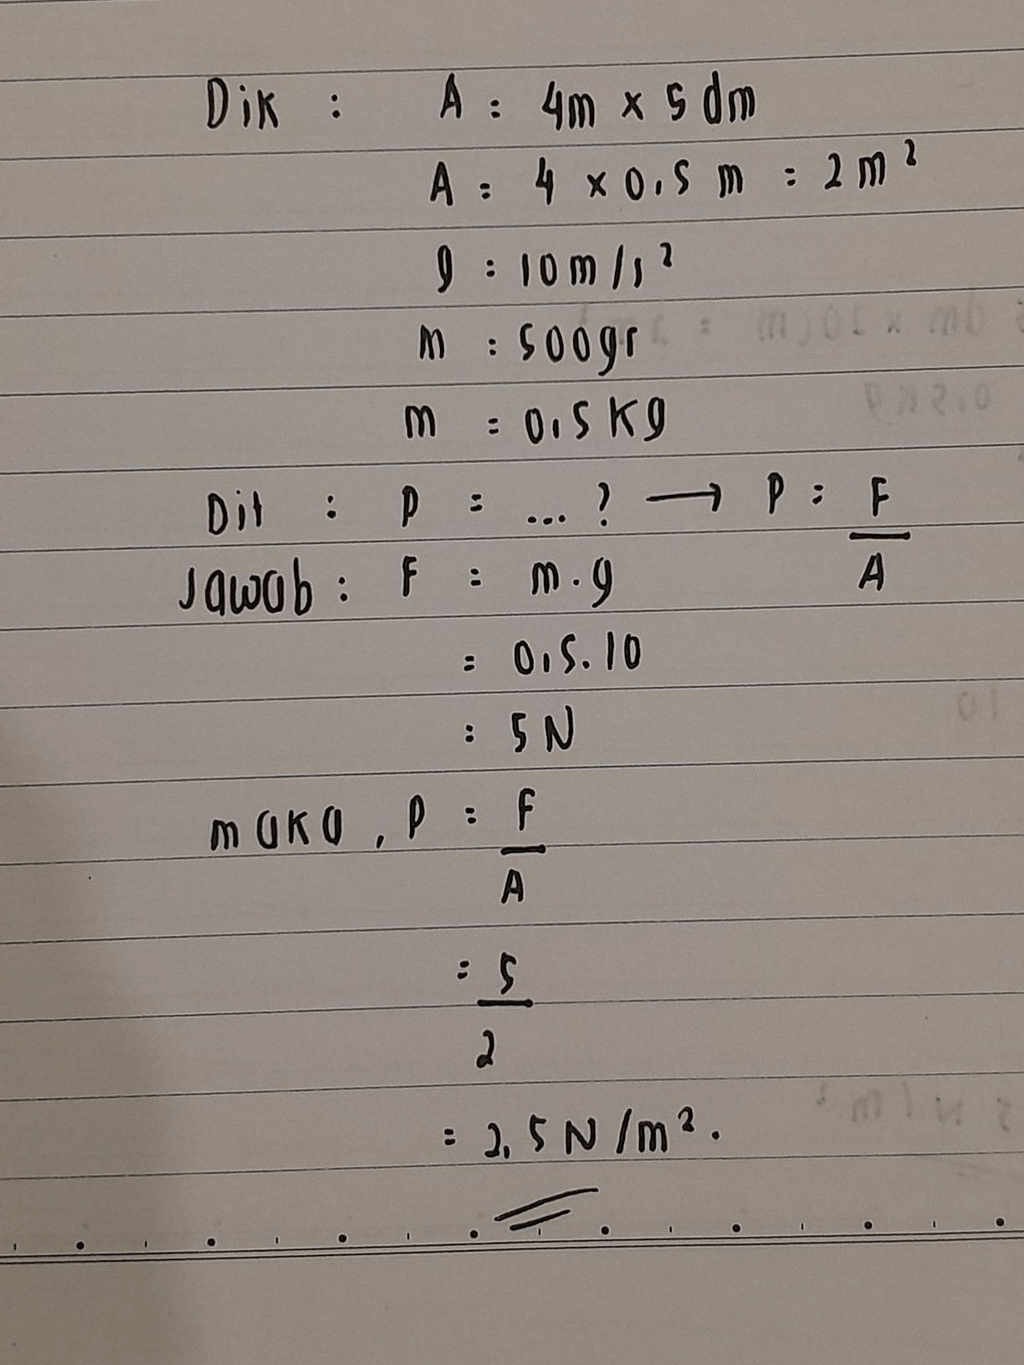 Dik : A = 4m x 5 dm
A = 4 x 0,5 m = 2 m²
g = 10 m/s²
m = 500gr
m = 0,5 Kg
Dit : P = ... ? → P = F/A
Jawab : F = m.g
= 0,5.10
= 5 N
maka, P = F/A
= 5/2
= 2,5 N/m².